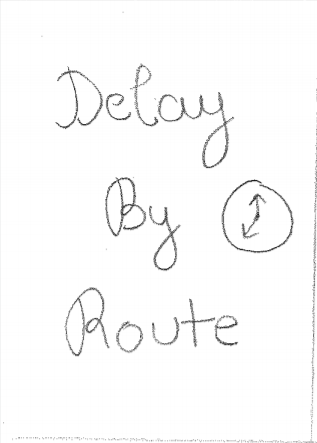 Delay
By
Route